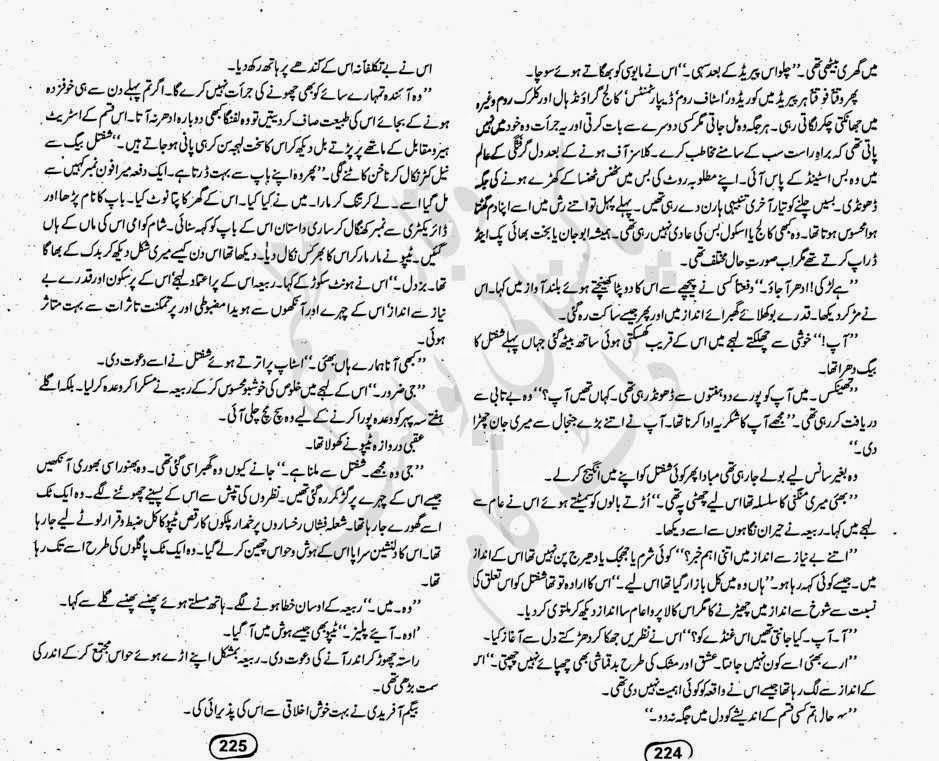 میں گھری بیٹھی تھی۔ ”چلو اس پیریڈ کے بعد سہی۔“ اس نے مایوسی کو بھگاتے ہوئے سوچا۔
پھر وقتاً فوقتاً ہر پیریڈ میں کوریڈور ’اسٹاف روم‘ ڈیپارٹمنٹس‘ کالج گراؤنڈ ہال اور کلرک روم وغیرہ
میں جھانکتی چکر لگاتی رہی۔ ہر جگہ وہ مل جاتی مگر کسی دوسرے سے بات کرتی اور یہ جرأت وہ خود میں نہیں
پاتی تھی کہ براہِ راست سب کے سامنے مخاطب کرے۔ کلاسز آف ہونے کے بعد دل گرفتگی کے عالم
میں وہ بس اسٹینڈ کے پاس آئی۔ اپنے مطلوبہ روٹ کی بس میں ٹھس ٹھسا کے کھڑے ہونے کی جگہ
ڈھونڈی۔ بسیں چلنے کو تیار آخری تنبیہی ہارن دے رہی تھیں۔ پہلے پہل تو اتنے رش میں اسے اپنا دم گھٹتا
ہوا محسوس ہوتا تھا۔ وہ کبھی کالج یا اسکول بس کی عادی نہیں رہی تھی۔ ہمیشہ ابو جان یا بخت بھائی پک اینڈ
ڈراپ کرتے تھے مگر اب صورتِ حال مختلف تھی۔
”ہے لڑکی! ادھر آ جاؤ۔“ دفعتاً کسی نے پیچھے سے اس کا دوپٹا کھینچتے ہوئے بلند آواز میں کہا۔ اس
نے مڑ کر دیکھا۔ قدرے بوکھلائے گھبرائے انداز میں اور پھر جیسے ساکت رہ گئی۔
”آپ!“ خوشی سے چھلکتے لہجے میں اس کے قریب کھسکتی ہوئی ساتھ بیٹھ گئی جہاں پہلے شفتل کا
بیگ دھرا تھا۔
”تھینکس۔ میں آپ کو پورے دو ہفتوں سے ڈھونڈ رہی تھی۔ کہاں تھیں آپ؟“ وہ بے تابی سے
دریافت کر رہی تھی۔ ”مجھے آپ کا شکریہ ادا کرنا تھا۔ آپ نے اتنے بڑے جنجال سے میری جان چھڑا
دی۔“
وہ بغیر سانس لیے بولے جا رہی تھی مبادا پھر کوئی شفتل کو اپنے میں انگیج کر لے۔
”بھئی میری منگنی کا سلسلہ تھا اس لیے چھٹی پہ تھی۔“ اُڑتے بالوں کو سمیٹتے ہوئے اس نے عام سے
لہجے میں کہا۔ ربیعہ نے حیران نگاہوں سے اسے دیکھا۔
”اتنے بے نیاز سے انداز میں اتنی اہم خبر؟“ کوئی شرم یا جھجک یا دھیرج پن نہیں تھا اس کے انداز
میں۔ جیسے کوئی کہہ رہا ہو۔ ”ہاں وہ میں کل بازار گیا تھا اس لیے۔“ اس کا ارادہ تو تھا شفتل کو اس تعلق کی
نسبت سے شوخ سے انداز میں چھیڑنے کا مگر اس کا لاپروا عام سا انداز دیکھ کر ملتوی کر دیا۔
”آ۔ آپ۔ کیا جانتی تھیں اس غنڈے کو؟“ اس نے نظریں جھکا کر دھڑکتے دل سے آغاز کیا۔
”ارے بھئی اسے کون نہیں جانتا۔ عشق اور مشک کی طرح بدقماشی بھی چھپائے نہیں چھپتی۔“ اس
کے انداز سے لگ رہا تھا جیسے اس نے واقعہ کو کوئی اہمیت نہیں دی تھی۔
حال تم کسی قسم کے اندیشے کو دل میں جگہ نہ دو۔“
224
اس نے بے تکلفانہ اس کے کندھے پر ہاتھ رکھ دیا۔
”وہ آئندہ تمہارے سائے کو بھی چھونے کی جرأت نہیں کرے گا۔ اگر تم پہلے دن سے ہی خوفزدہ
ہونے کے بجائے اس کی طبیعت صاف کر دیتیں تو وہ لفنگا کبھی دوبارہ ادھر نہ آتا۔ اس قسم کے اسٹریٹ
ہیرو مقابل کے ماتھے پر پڑتے بل دیکھ کر اس کا سخت لہجہ سن کر ہی پانی ہو جاتے ہیں۔“ شفتل بیگ سے
نیل کٹر نکال کر ناخن کاٹنے لگی۔ ”پھر وہ اپنے باپ سے بہت ڈرتا ہے۔ ایک دفعہ میرا فون نمبر کہیں سے
مل گیا اسے۔ لے کر تنگ کر مارا۔ میں نے کیا کیا۔ اس کے گھر کا پتا نوٹ کیا۔ باپ کا نام پڑھا اور
ڈائریکٹری سے نمبر کھنگال کر ساری داستان اس کے باپ کو کہہ سنائی۔ شام کو امی اس کی ماں کے ہاں
گئیں۔ ٹیپو نے مار مار کر اس کا بھرکس نکال دیا۔ دیکھا تھا اس دن کیسے میری شکل دیکھ کر بدک کے بھاگا
تھا۔ بزدل۔“ اس نے ہونٹ سکوڑ کے کہا۔ ربیعہ اس کے پراعتماد لہجے‘ اس کے پرسکون اور قدرے بے
نیاز سے انداز‘ اس کے چہرے اور آنکھوں سے ہویدا مضبوطی اور پرتمکنت تاثرات سے بہت متاثر
ہوئی۔
”کبھی آنا ہمارے ہاں بھئی۔“ اسٹاپ پر اترتے ہوئے شفتل نے اسے دعوت دی۔
”جی ضرور۔“ اس کے لہجے میں خلوص کی خوشبو محسوس کر کے ربیعہ نے مسکرا کر وعدہ کر لیا۔ بلکہ اگلے
ہفتے سہ پہر کو وعدہ پورا کرنے کے لیے وہ سچ مچ چلی آئی۔
عقبی دروازہ ٹیپو نے کھولا تھا۔
”جی وہ مجھے۔ شفتل سے ملنا ہے۔“ جانے کیوں وہ گھبرا سی گئی تھی۔ وہ بھنورا سی بھوری آنکھیں
جیسے اس کے چہرے پر گڑ کر رہ گئی تھیں۔ نظروں کی تپش سے اس کے پسینے چھوٹنے لگے۔ وہ ایک ٹک
اسے گھورے جا رہا تھا۔ شعلہ فشاں رخساروں پر خمدار پلکوں کا رقص ٹیپو کا کل ضبط و قرار لوٹے لیے جا رہا
تھا۔ اس کا دلنشین سراپا اس کے ہوش و حواس چھین کر لے گیا۔ وہ ایک ٹک پاگلوں کی طرح اسے تک رہا
تھا۔
”وہ۔ میں۔“ ربیعہ کے اوسان خطا ہونے لگے۔ ہاتھ مسلتے ہوئے پھنسے پھنسے گلے سے کہا۔
’اوہ۔ آیئے پلیز۔“ ٹیپو بھی جیسے ہوش میں آ گیا۔
راستہ چھوڑ کر اندر آنے کی دعوت دی۔ ربیعہ بمشکل اپنے اڑے ہوئے حواس مجتمع کر کے اندر کی
سمت بڑھی تھی۔
بیگم آفریدی نے بہت خوش اخلاقی سے اس کی پذیرائی کی۔
225